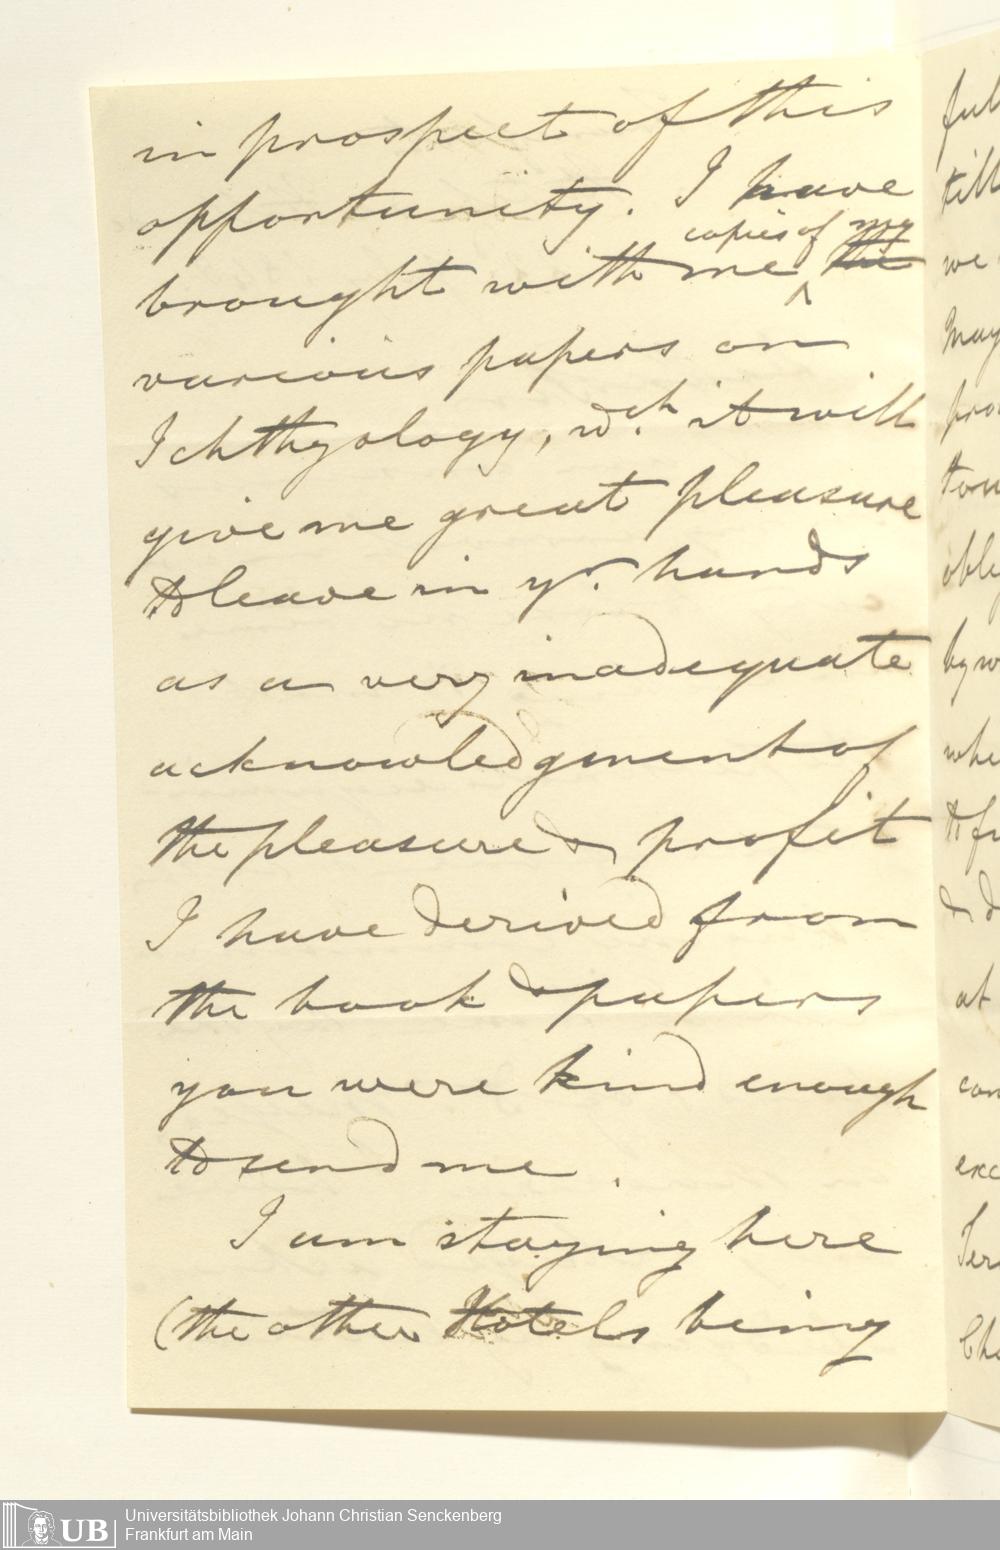 in prospect of this
opportunity. I have
brought with me copies of my the
various papers on
Ichthyology, wch. it will
give me great pleasure
to leave in yr. hands
as a very inadequate
acknowledgment of
the pleasure & profit
I have derived from
the book & papers
you were kind enough
to send me.
I am staying here
(the other Hotels being
ful
till
we
May
pro
tou
by w
whe
to fr
& d
at
con
exc
Ter
Cha
UB
Universitätsbibliothek Johann Christian Senckenberg
Frankfurt am Main